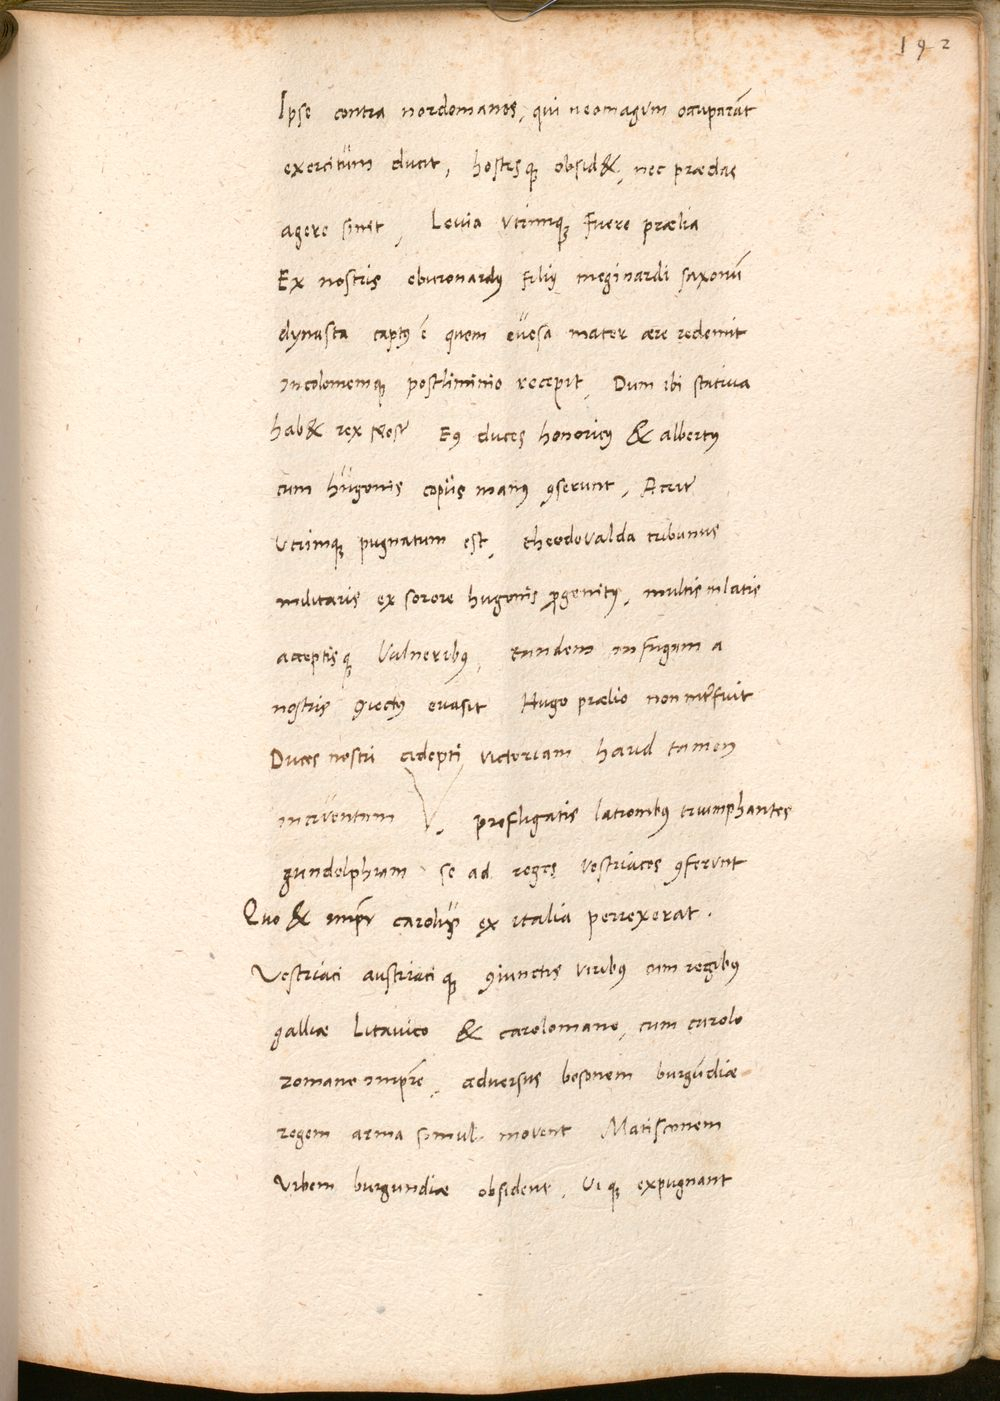 192
Ipse contra nordomanos, qui neomagum occuparāt
exercitum ducit, hostesq; obsid&, nec prædas
agere sinit, Levia Vtrimq; fuere prælia
Ex nostris eburonardꝰ filiꝰ meginardi saxonū
dynasta captꝰ ē quem evesa mater ære redemit
Incolomemq; postliminio recepit, Dum ibi stativa
hab& rex Noster Eiꝰ duces honoricꝰ & albertꝰ
cum hugonis copiis manꝰ ꝯserunt, Acriter
Vtrimq; pugnatum est, theodovalda tribunus
militaris ex sorore hugonis ꝓgenitꝰ, multis inlatis
acceptisq; Vulneribꝰ, tandem in fugam a
nostris ꝯiectꝰ evasit Hugo prælio non interfuit
Duces nostri adepti victoriam haud tamen
incruentam, profligatis latronibꝰ triumphantes
gundolphram se ad reges vestriaces ꝯferunt
Quo & impr̄ carolus ex italia perrexerat.
Vestriaci austriaciq; ꝯiunctis viribꝰ cum regibꝰ
galliæ Litavico & carolomano, cum carolo
romano impr̄e, adversus bosonem burgūdiæ
regem arma simul movent Matisconem
Vrbem burgundiæ obsident, Viq; expugnant